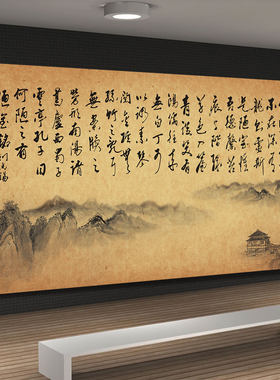 是陋室惟
吾德馨苔
痕上階綠
草色入簾
青談笑有
鴻儒往來
無白丁可
以調素琴
閱金經無
絲竹之亂耳
無案牘之
勞形南陽諸
葛廬西蜀子
雲亭孔子曰
何陋之有
陋室銘劉禹錫